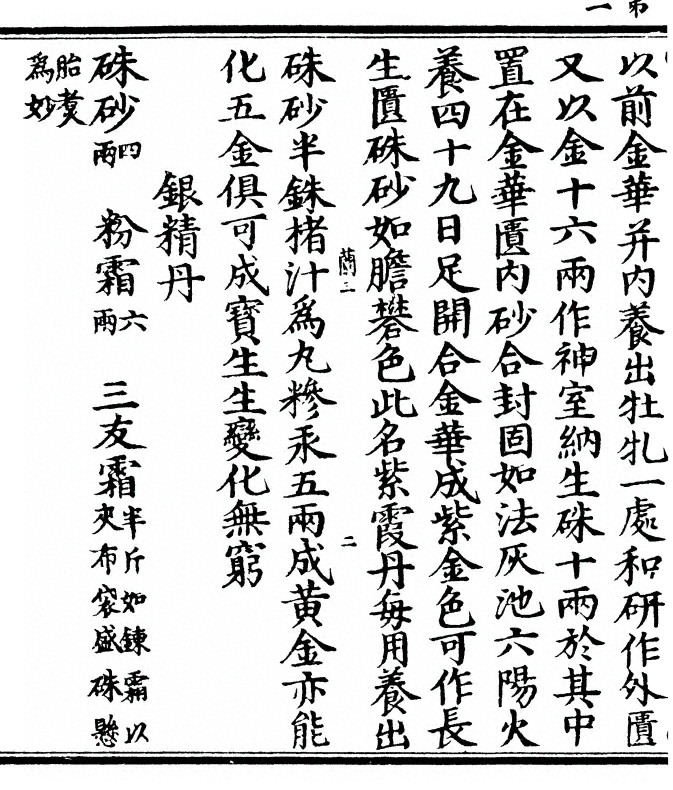 以前金華并内養出牡牝一處和硏作外匱
又以金十六兩作神室納生硃十兩於其中
置在金華匱内砂合封固如法灰池六陽火
養四十九日足開合金華成紫金色可作長
生匱硃砂如膽礬色此名紫霞丹每用養出
硃砂半銖楮汁爲丸糝汞五兩成黃金亦能
化五金俱可成寶生生變化無窮
銀精丹
硃砂四兩 粉霜六兩 三友霜半斤如鍊霜以夾布袋盛硃懸
胎煑爲妙
蘭三
二